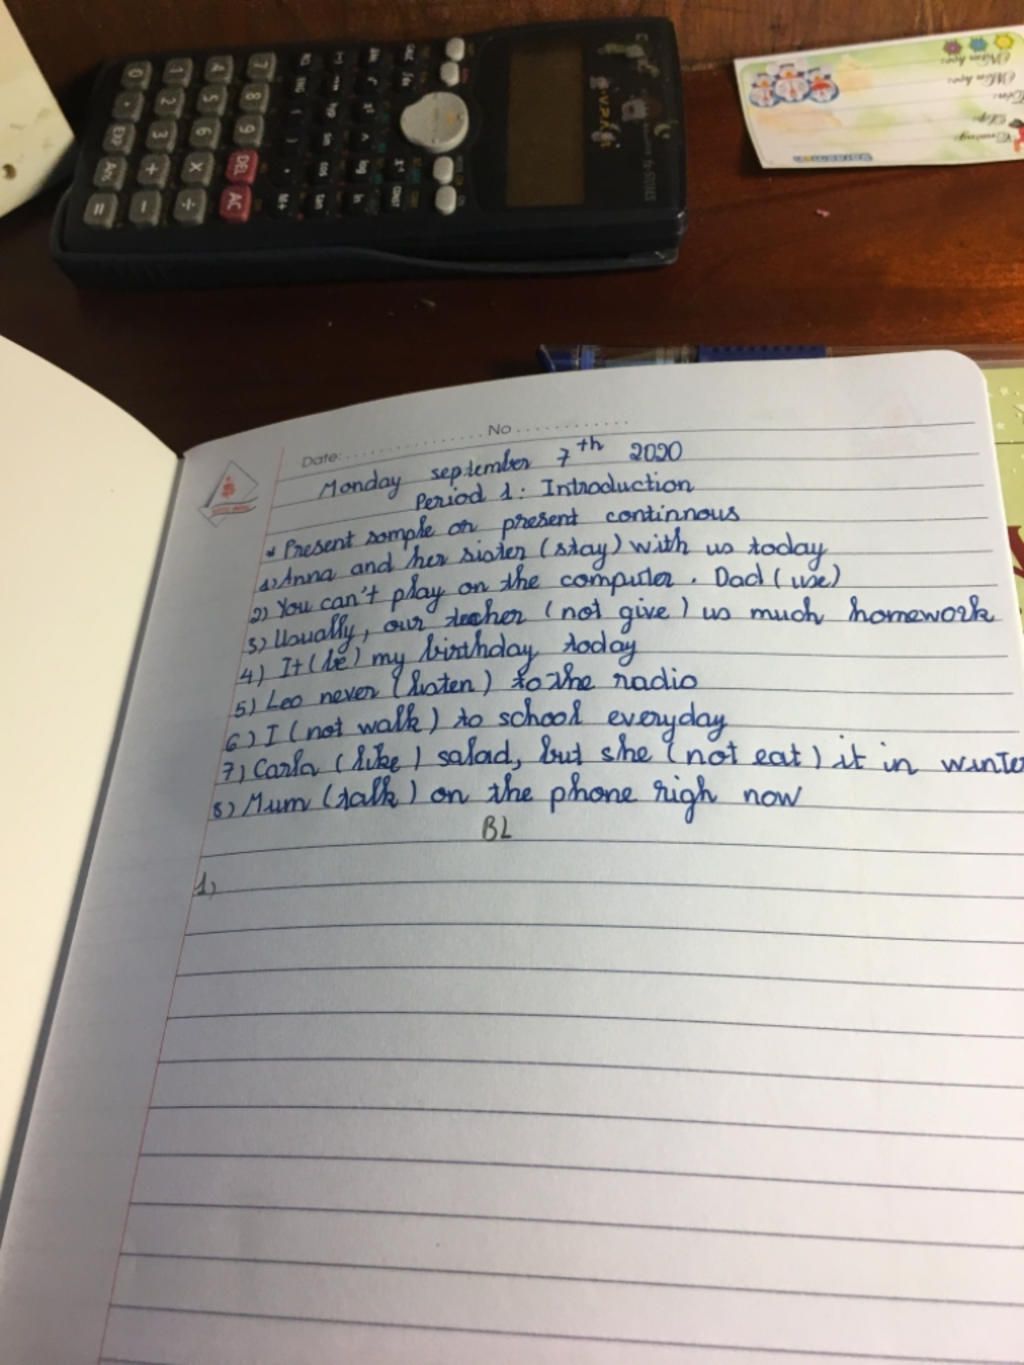 7 8 9 DEL AC
4 5 6 X ÷
1 2 3 + -
0 . EXP Ans =
Date: No
Monday september 7th 2020
Period 1: Introduction
* Present somple or present continnous
1) Anna and her sister (stay) with us today
2) You can't play on the computer. Dad (use)
3) Usually, our techer (not give) us much homework
4) It (be) my birthday today
5) Leo never (listen) to the radio
6) I (not walk) to school everyday
7) Carla (like) salad, but she (not eat) it in winter
8) Mum (talk) on the phone righ now
BL
1)